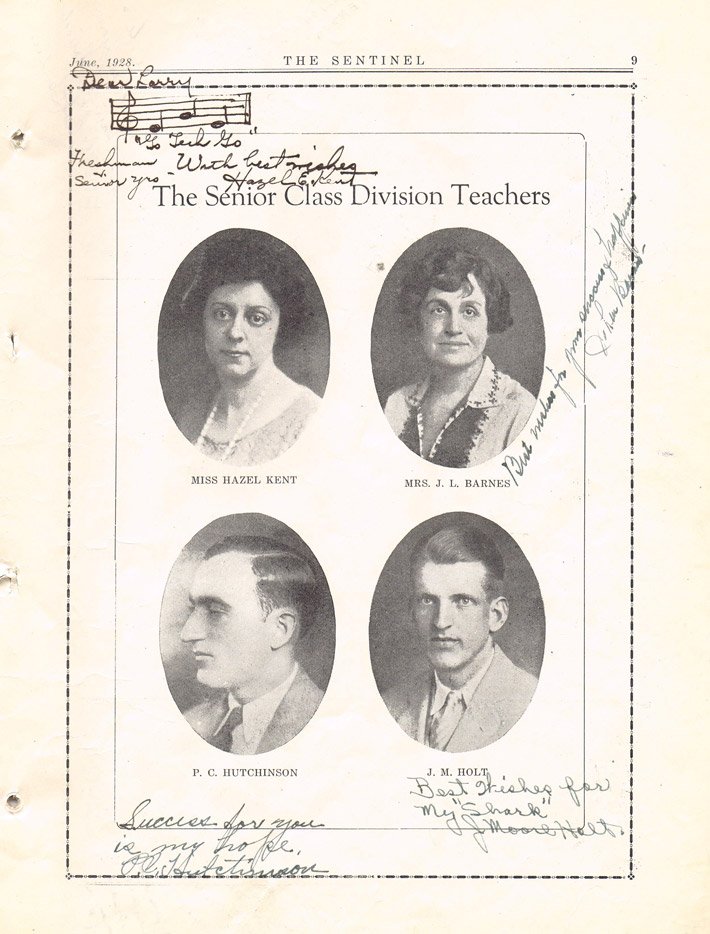 June, 1928. THE SENTINEL 9
Dear Larry
"Go Tech Go"
Freshman With best wishes
Senior yrs Hazel E. Kent
The Senior Class Division Teachers
MISS HAZEL KENT
MRS. J. L. BARNES
Best wishes for your
P. C. HUTCHINSON
J. M. HOLT
Best Wishes for
My "Shark"
J Moore Holt.
Success for you
is my hope.
P.C. Hutchinson